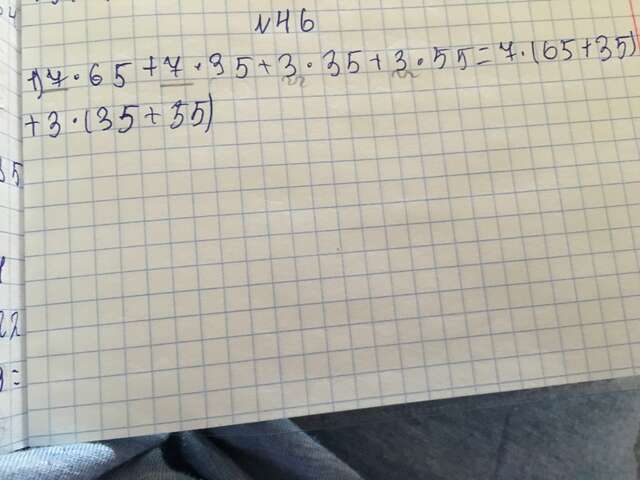 №46
1) 7·65+7·35+3·35+3·55=7·(65+35)
+3·(35+55)
35
22
=